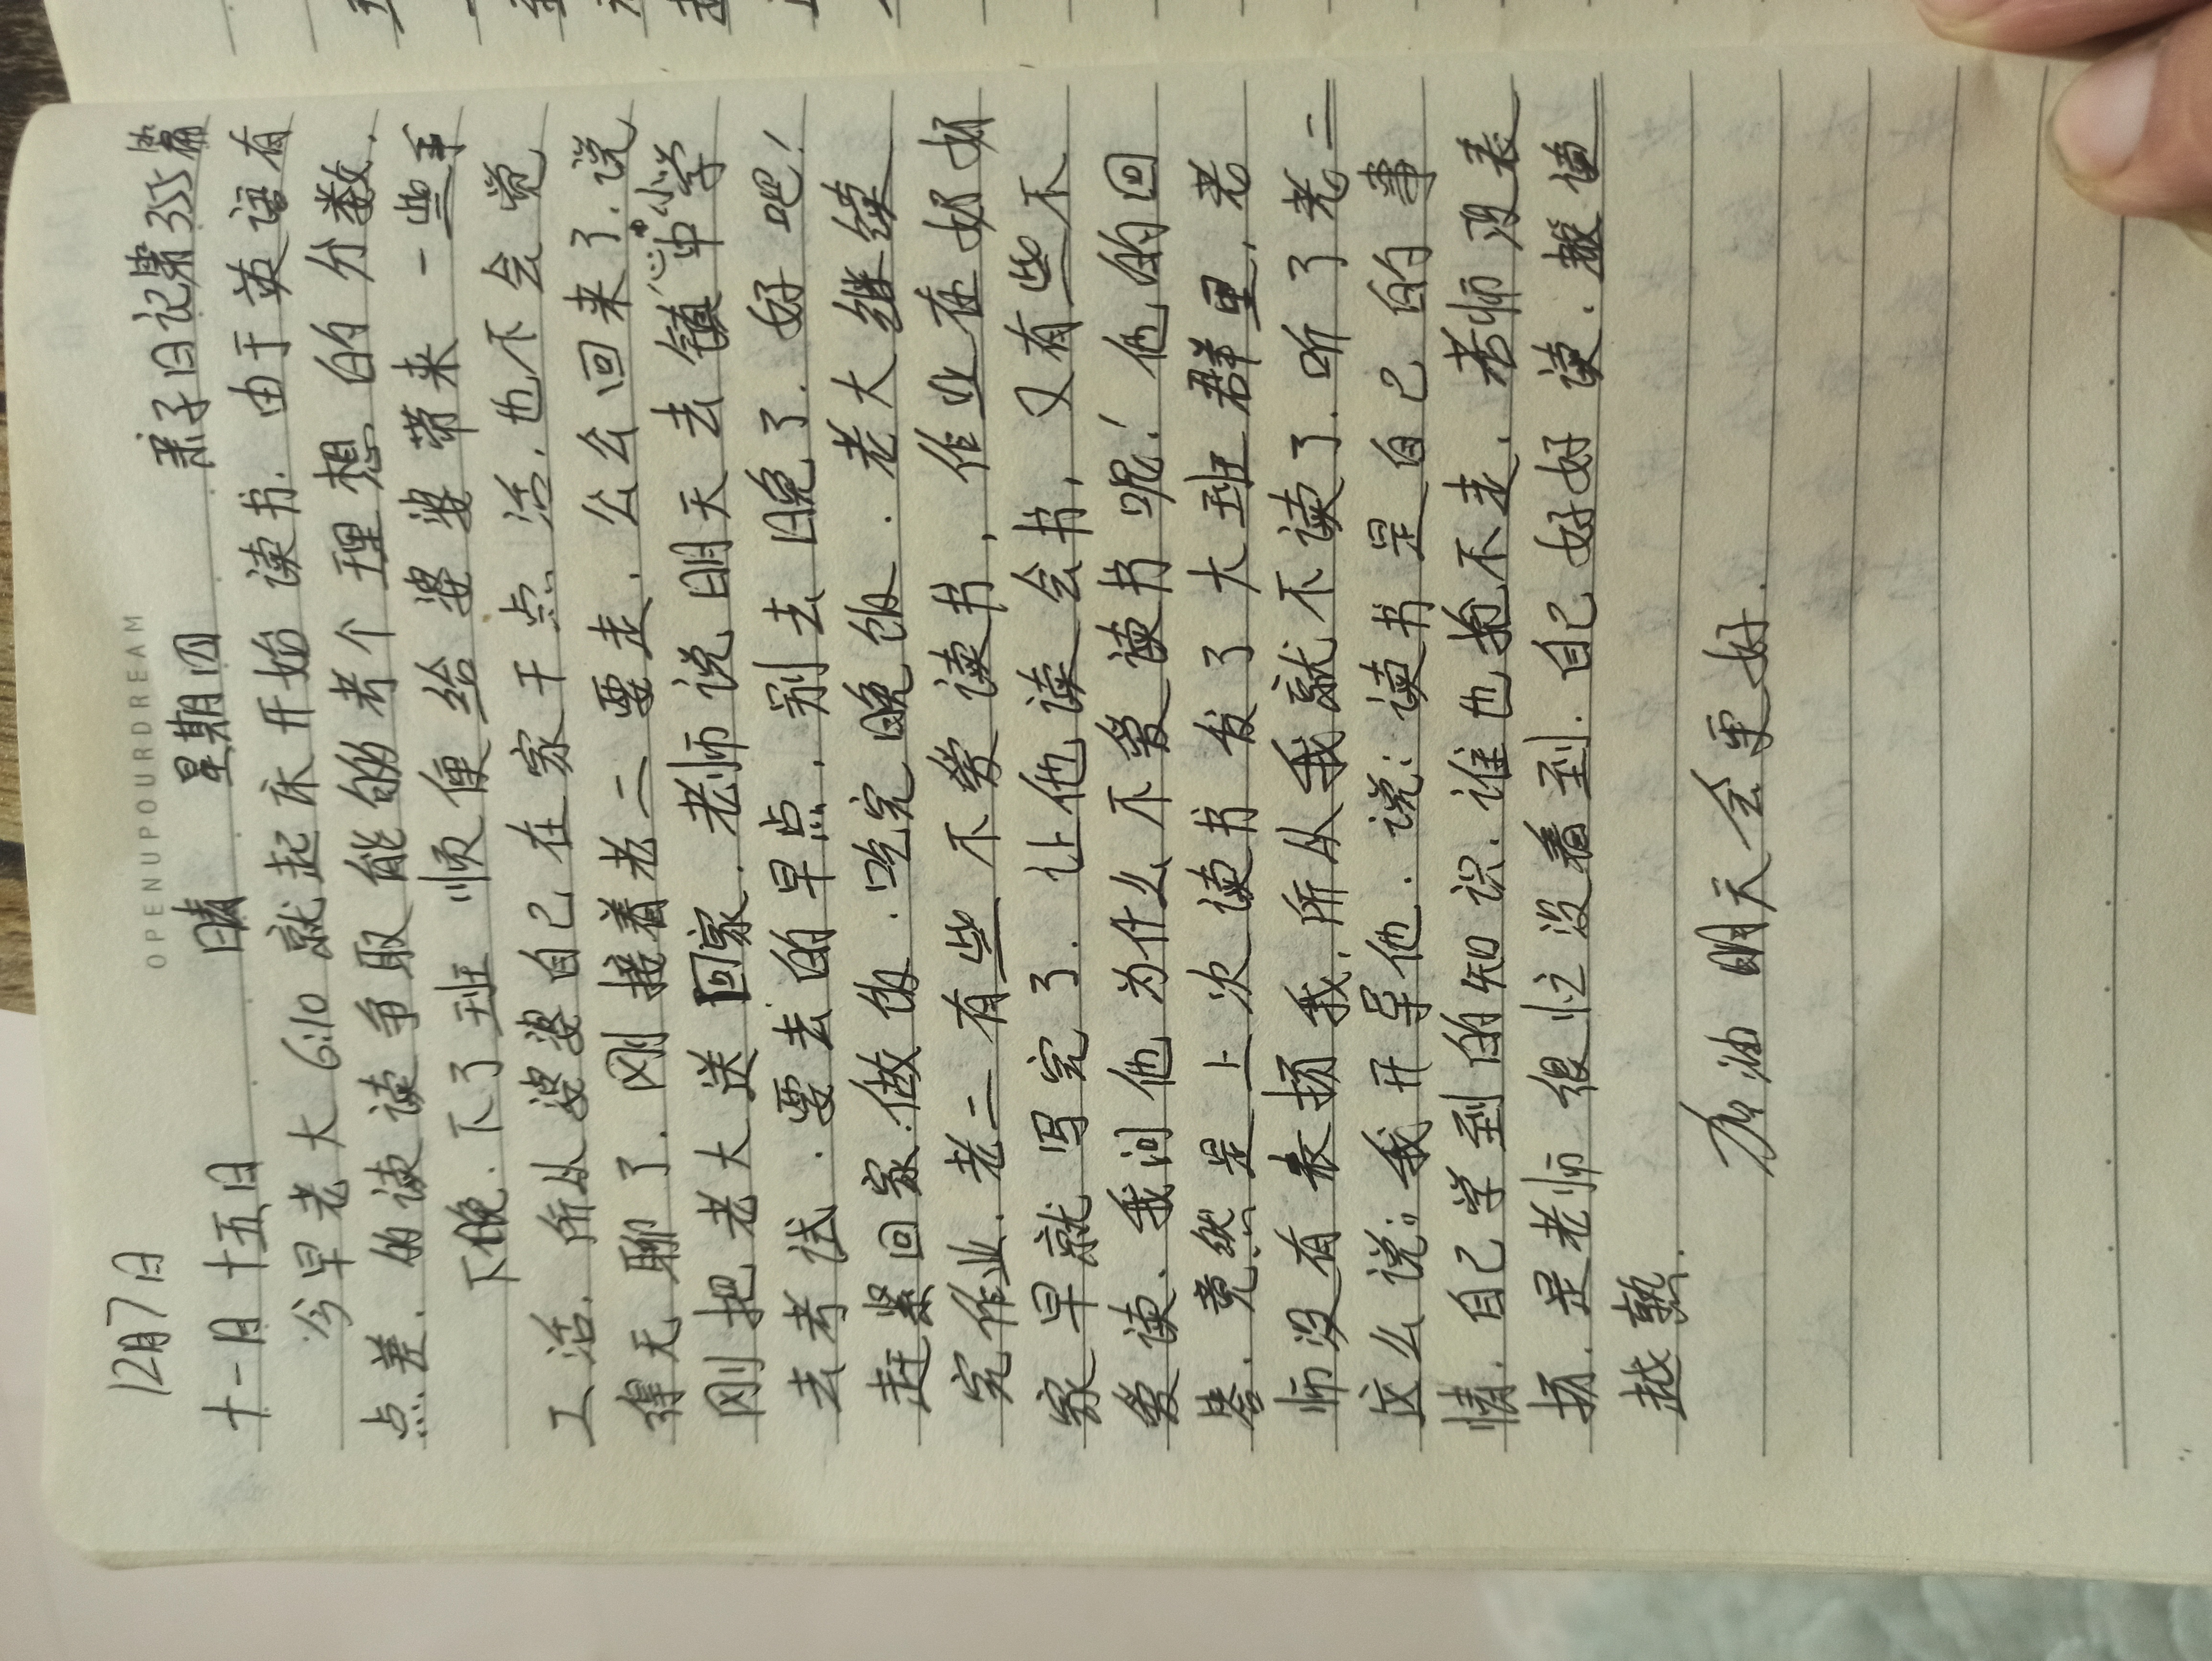 OPENUPOURDREAM
12月7日
十一月十五日 晴 星期四 亲子日记第355篇
今早老大6:10就起床开始读书.由于英语有
点差.的读读争取能够考个理想的分数.
下晚.下了班 顺便给婆婆带来一些手
工活.所从婆婆自己在家干点活.也不会觉
得无聊了.刚接着老二要走.公公回来了.说
刚把老大送回家.老师说明天去镇中小学
去考试.要去的早点.别去晚了.好吧!
赶紧回家.做饭.吃完晚饭.老大继续
完作业.老二有些不爱读书,作业在奶奶
家早就写完了.让他读会书,又有些不
爱读.我问他为什么不爱读书呢!他的回
答.竟然是上次读书发了大班群里,老
师没有表扬我.所从我就不读了.听了老二
这么说:我开导他.说:读书是自己的事
情.自己学到的知识.谁也抢不走.老师没表
扬.是老师很忙没看到.自己好好读.越读
越熟.
加油 明天会更好.